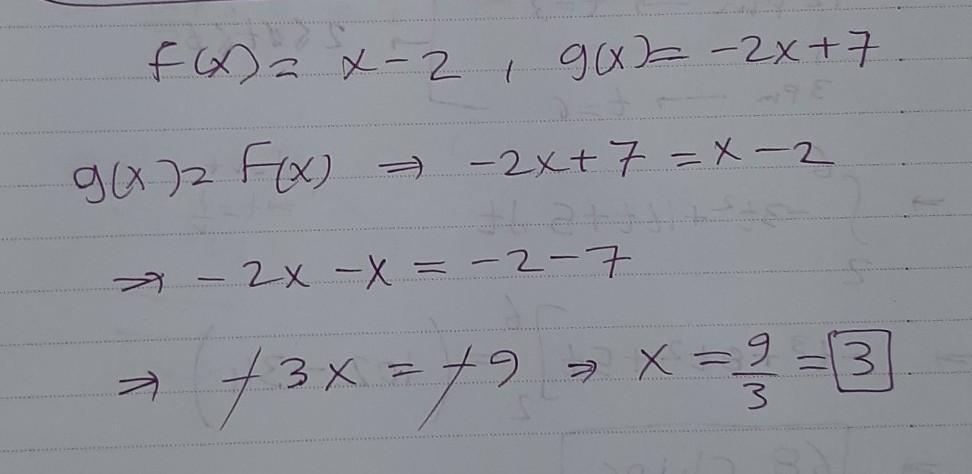 F(x) = x - 2 , g(x) = -2x + 7
g(x) = F(x) ⇒ -2x + 7 = x - 2
⇒ -2x - x = -2 - 7
⇒ -3x = -9 ⇒ x = 9/3 = 3